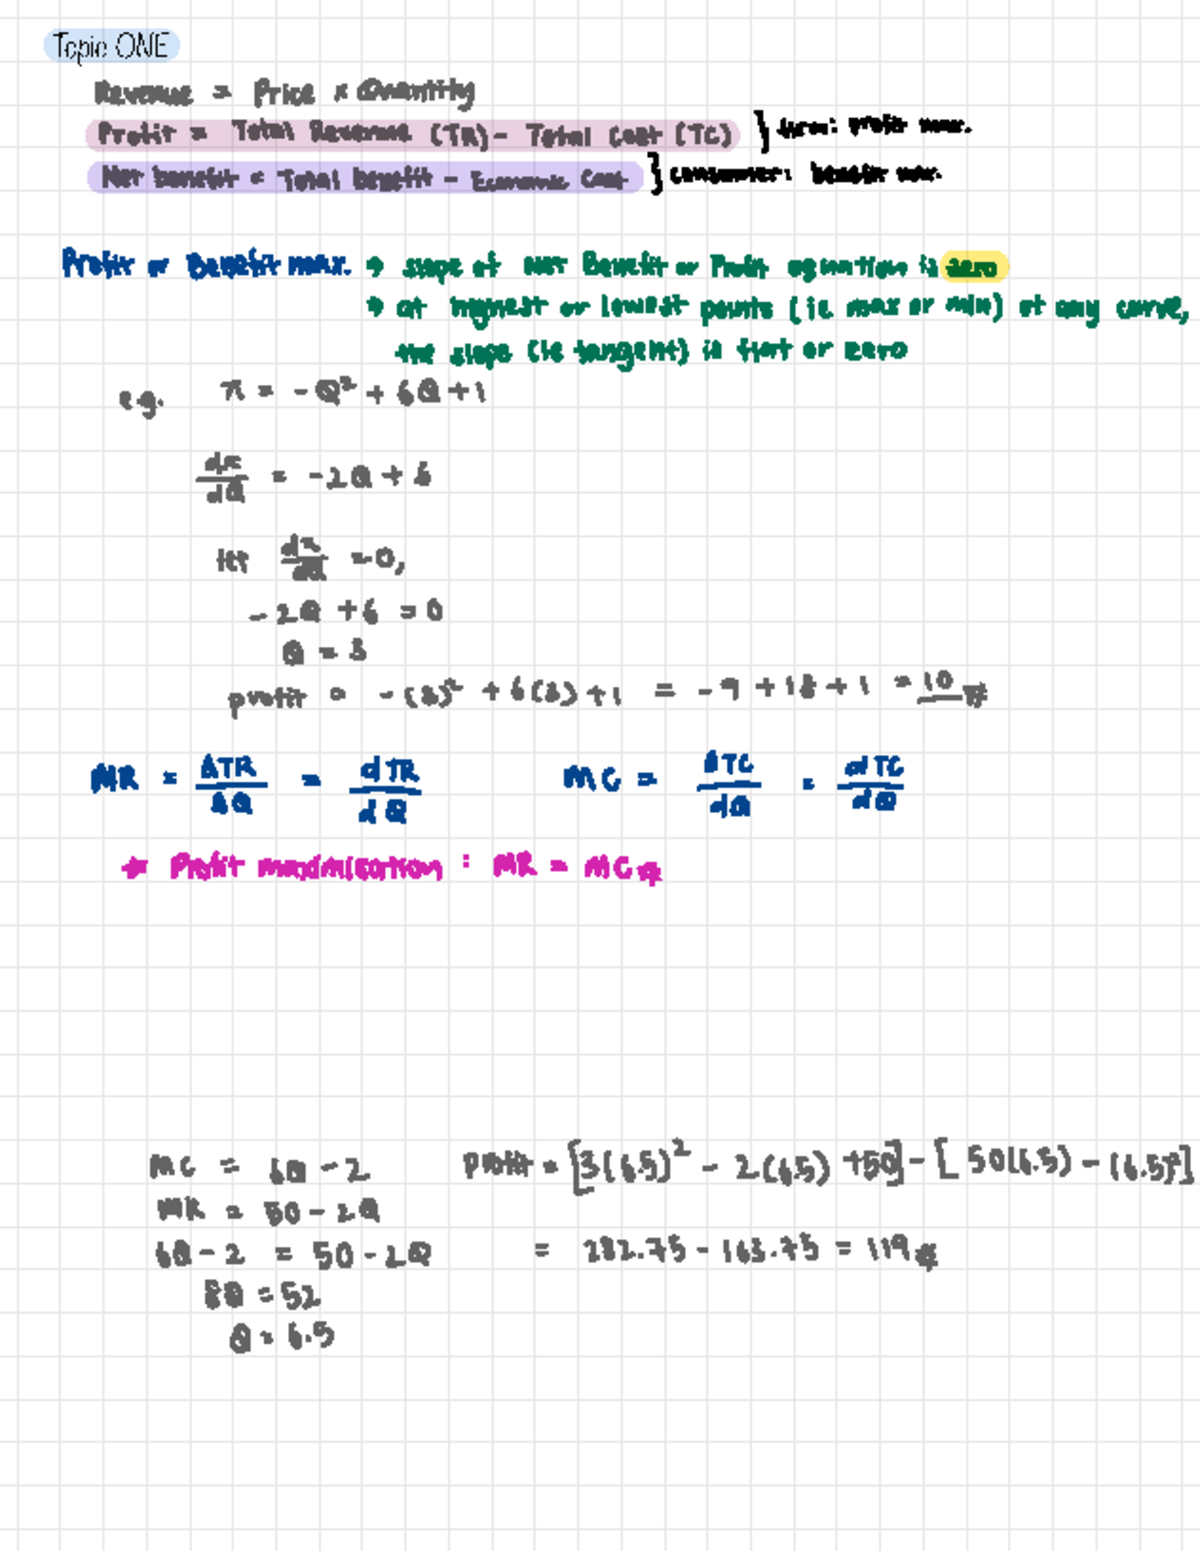 Topic ONE
Revenue = Price x Quantity
Profit = Total Revenue (TR) - Total Cost (TC) } firm: profit max.
Net benefit = Total benefit - Economic Cost } consumer: benefit max.
Profit or Benefit max. → slope of Net Benefit or Profit equation is zero
→ at highest or lowest points (ie max or min) of any curve,
the slope (ie tangent) is flat or zero
e.g. π = -Q² + 6Q + 1
dπ/dQ = -2Q + 6
let dπ/dQ = 0,
-2Q + 6 = 0
Q = 3
profit = -(3)² + 6(3) + 1 = -9 + 18 + 1 = 10 #
MR = ΔTR/ΔQ = dTR/dQ MC = ΔTC/dQ = dTC/dQ
* Profit maximisation : MR = MC #
MC = 6Q - 2 profit = [3(6.5)² - 2(6.5) + 50] - [50(6.5) - (6.5)²]
MR = 50 - 2Q
6Q - 2 = 50 - 2Q = 282.75 - 163.75 = 119 #
8Q = 52
Q = 6.5